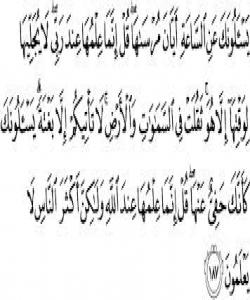 يَسْـَٔلُونَكَ عَنِ ٱلسَّاعَةِ أَيَّانَ مُرْسَىٰهَا ۖ قُلْ إِنَّمَا عِلْمُهَا عِندَ رَبِّى ۖ لَا يُجَلِّيهَا
لِوَقْتِهَآ إِلَّا هُوَ ۚ ثَقُلَتْ فِى ٱلسَّمَـٰوَٰتِ وَٱلْأَرْضِ ۚ لَا تَأْتِيكُمْ إِلَّا بَغْتَةً ۗ يَسْـَٔلُونَكَ
كَأَنَّكَ حَفِىٌّ عَنْهَا ۖ قُلْ إِنَّمَا عِلْمُهَا عِندَ ٱللَّهِ وَلَـٰكِنَّ أَكْثَرَ ٱلنَّاسِ لَا
يَعْلَمُونَ ۝١٨٧